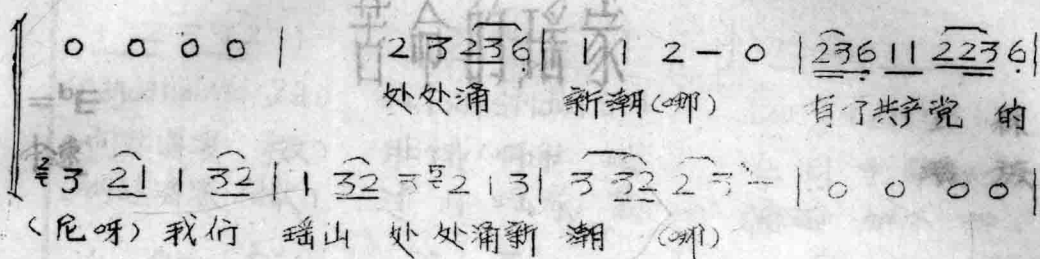 0 0 0 0 | 2 3 236 | 1 1 2 - 0 | 236 11 223 6 |
处处涌 新潮(哪) 有了共产党 的
3 21 1 32 | 1 32 3 2 1 3 | 3 32 2 3 - | 0 0 0 0 |
(尼呀) 我们 瑶山 处处涌新 潮 (哪)